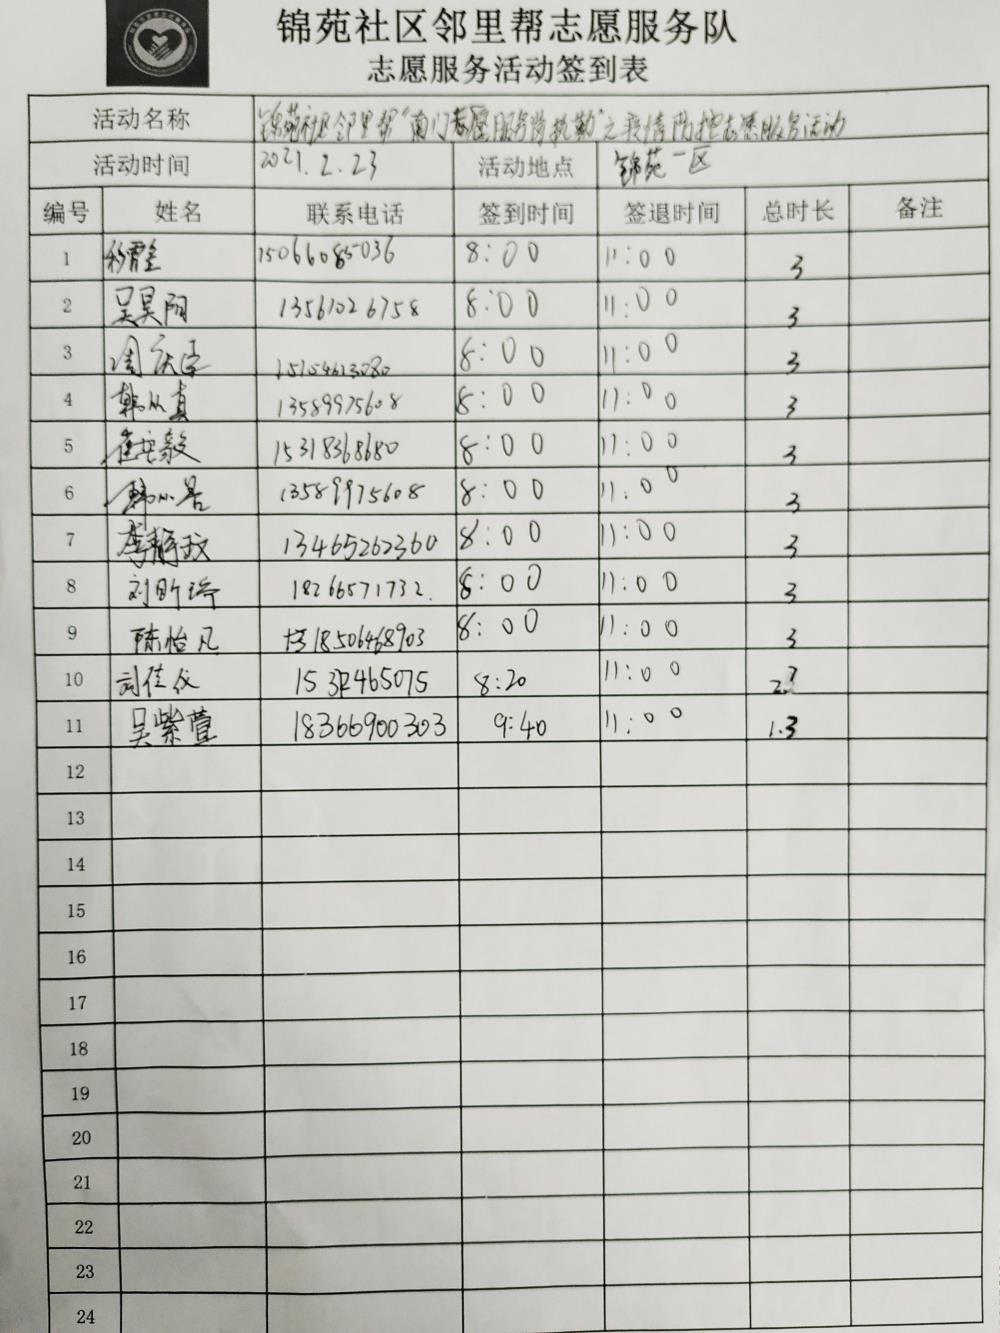 锦苑社区邻里帮志愿服务队
志愿服务活动签到表
活动名称 锦苑社区邻里帮“南门志愿服务岗执勤”之疫情防控志愿服务活动
活动时间 2021.2.23 活动地点 锦苑一区
编号 姓名 联系电话 签到时间 签退时间 总时长 备注
1 8:00 11:00 3
2 吴昊阳 13561026758 8:00 11:00 3
3 周庆宇 15154613080 8:00 11:00 3
4 韩从真 13589975608 8:00 11:00 3
5 15318368680 8:00 11:00 3
6 13589975608 8:00 11:00 3
7 李静玫 13465262360 8:00 11:00 3
8 刘昕瑶 18266571732. 8:00 11:00 3
9 陈怡凡 18506468903 8:00 11:00 3
10 刘佳仪 8:20 11:00
11 吴紫萱 18366900303 9:40 11:00 1.3
12
13
14
15
16
17
18
19
20
21
22
23
24